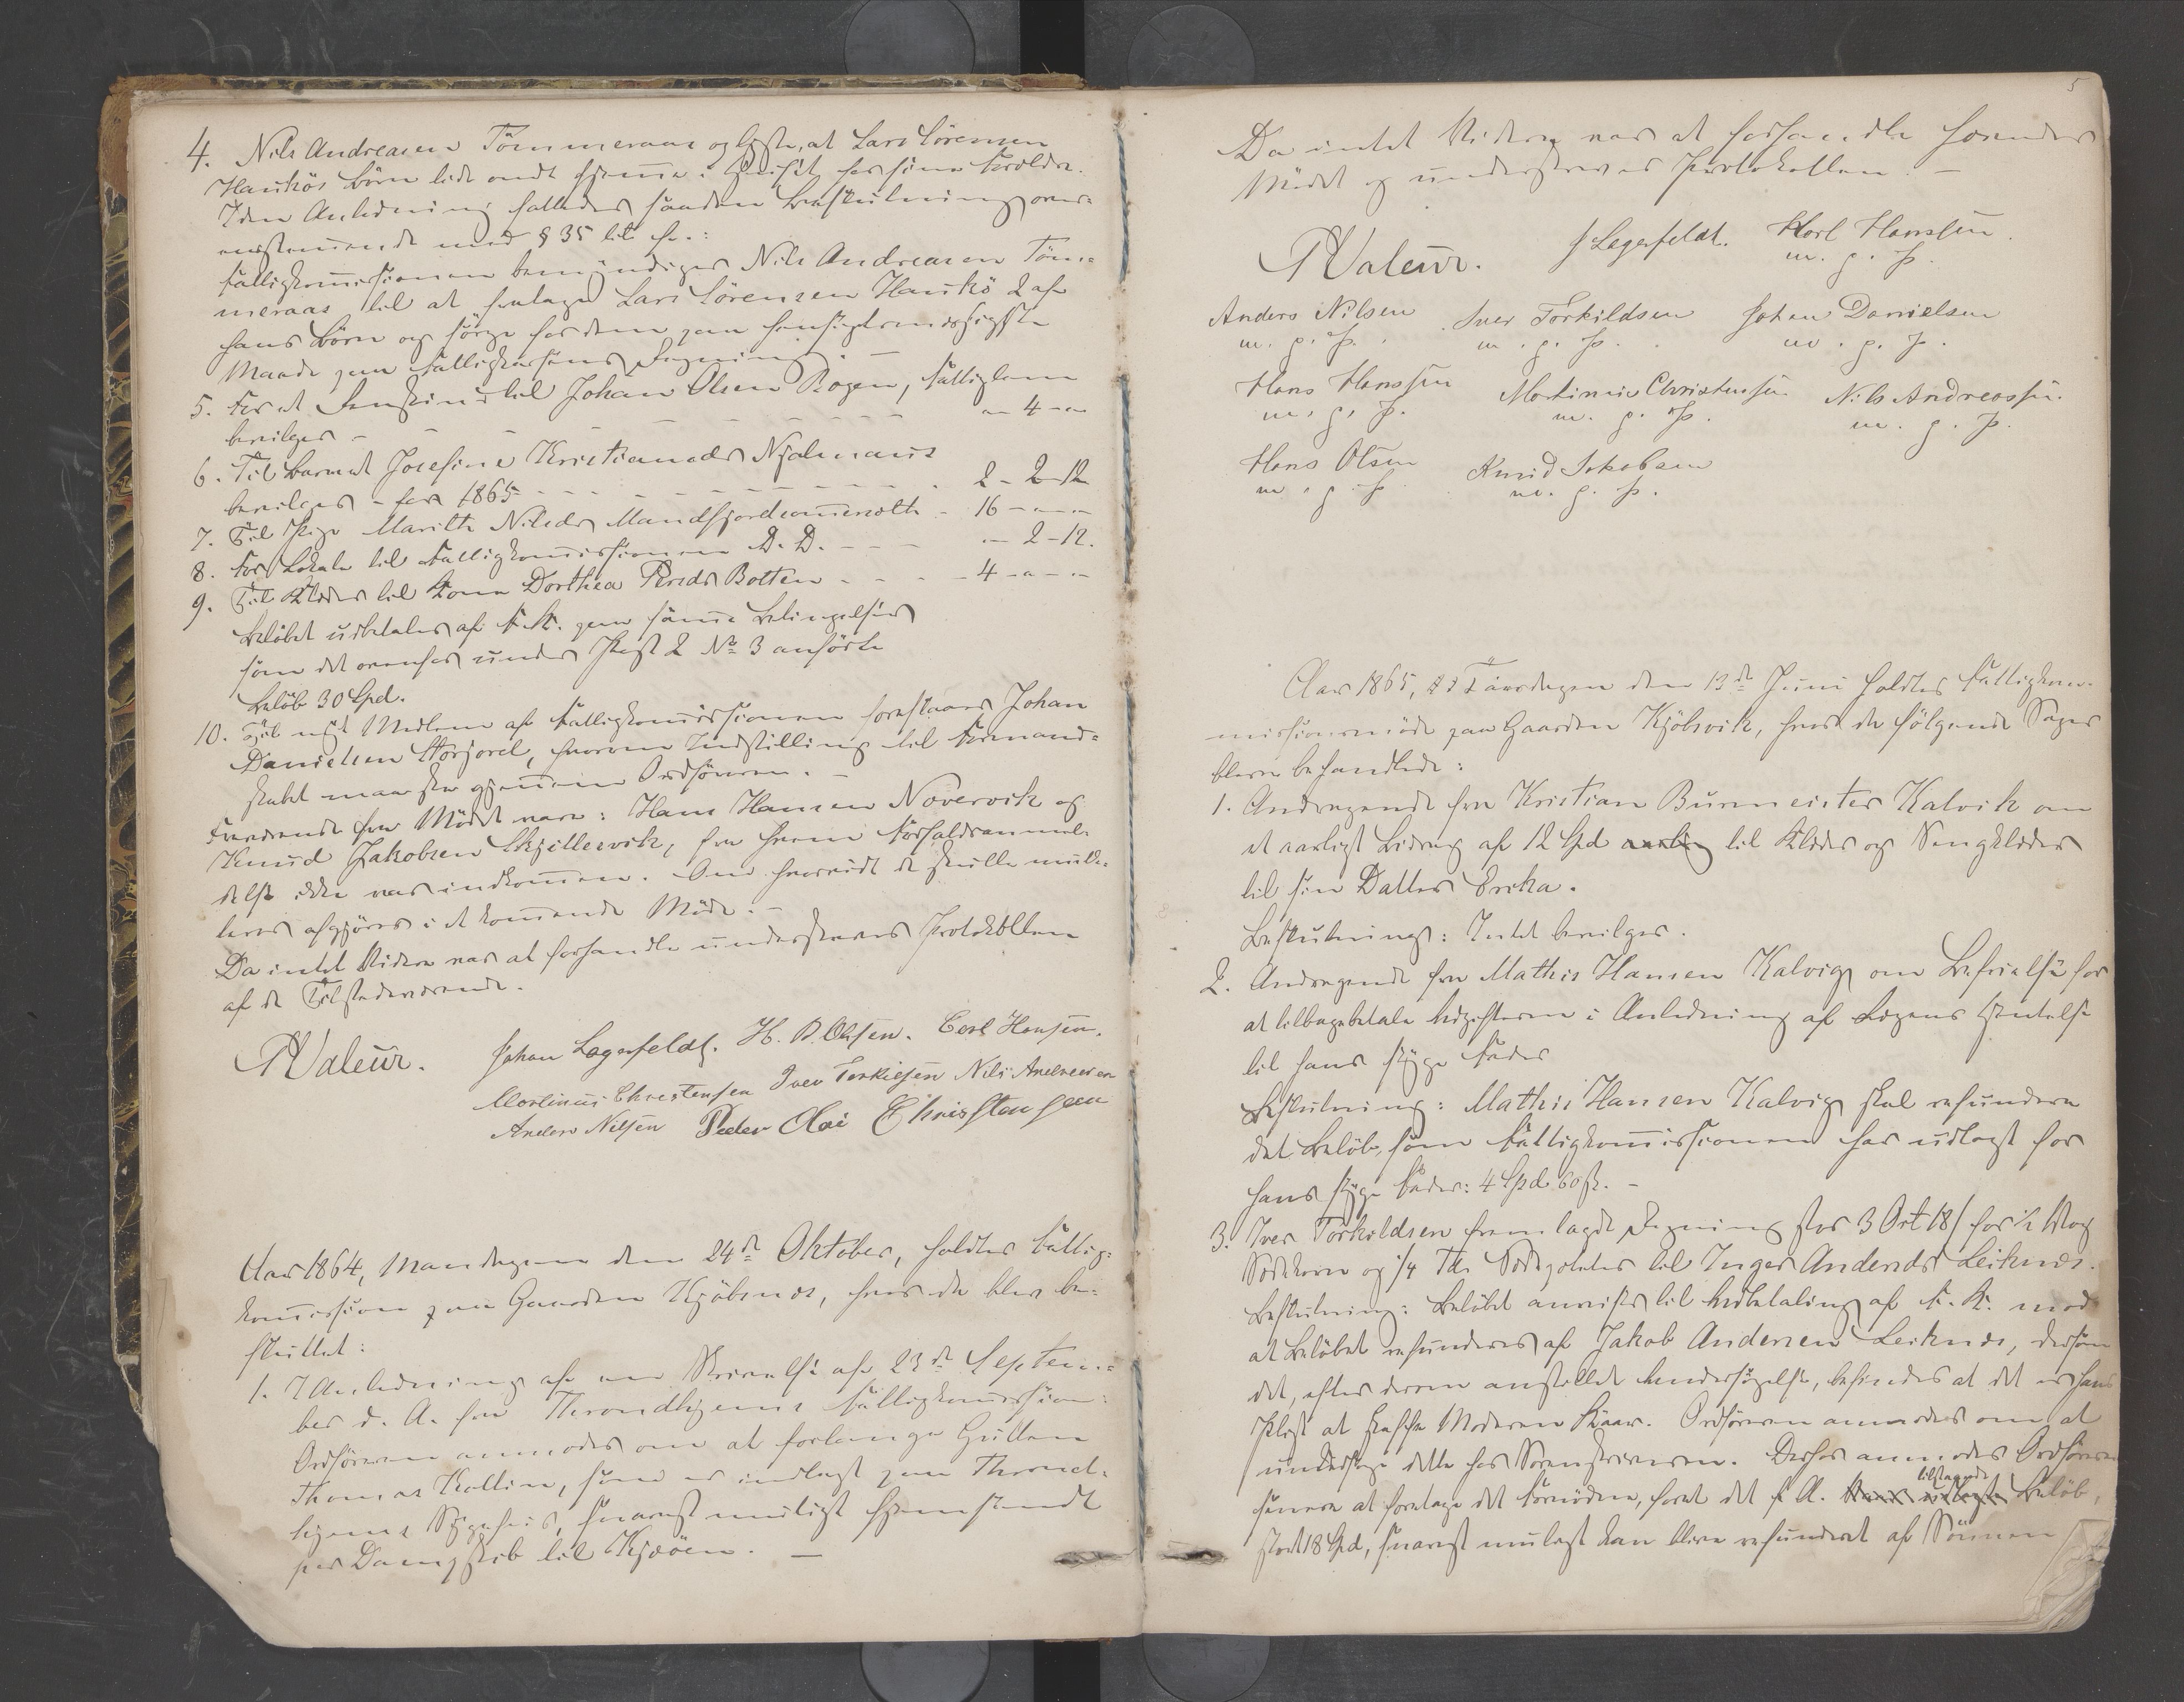 4. Nils Andreasen Tömmeraas oplyste, at Lars Sörensen
Haukös Börn lide ondt hjemme i Huset hos sine Forældre.
I den Anledning fattedes saadan Beslutning over-
ensstemmende med § 35 lit
Fattigkomissionen bemyndiger Nils Andreasen Töm-
meraas til at fratage Lars Sörensen Haukö 2 af
hans Börn og sörge for dem paa hensigtsmæssigste
Maade paa Fattigkassens Regning. —
5. For et til Johan Olsen Rogen, Fattiglem
bevilges - - - - - - „ - 4 - „
6. Til Barnet Josefine Kristiansdr Njalmaus
bevilges - for 1865 - - - - - - 2 - 2 - 12
7. Til Pige Marith Nilsdr Mandfjordsommersæth - 16 - „ - „
8. For Lokale til Fattigkomissionen D. D. - - - „ - 2 - 12.
9. Til Klæder til Kone Dorthea Persdr Botten - - - - 4 - „ - „
Belöbet udbetales af F. K. paa samme Betingelser
som det ovenfor under Post 2 No 3 anförte
Belöb 30 Spd.
10. Til nyt Medlem af Fattigkomissionen foreslaaes Johan
Danielsen Storjord, hvorom Indstilling til Formand-
skabet maa ske gjennem Ordföreren. —
Fraværende fra Mödet vare: Hans Hansen Novervik og
Knud Jakobsen Skjellesvik, fra hvem Forfaldsanmel-
delse ikke var indkommen. Om hvorvidt de skulle mulk-
teres afgjöres i et kommende Möde. —
Da intet videre var at forhandle underskreves Protokollen
af de Tilstedeværende.
P Valeur. Johan Lagerfeldt. H. P. Olsen. Carl Hansen.
Martinus Christensen Iver Torkielsen Nils Andreasen
Anders Nilsen Peder Olai Christensen
Aar 1864, Mandagen den 24de Oktober, holdtes Fattig-
komission paa Gaarden Kjöbsnes, hvor da blev be-
sluttet:
1. I Anledning af en Skrivelse af 23de Septem-
ber d. A. fra Throndhjems Fattigkomission:
Ordföreren anmodes om at forlange Gutten
Thomas Kollin, som er indlagt paa Thrond-
hjems Sygehus, snarest muligt hjemsendt
per Dampskib til Kjööen. —
5
Da intet videre var at forhandle hævedes
Mödet og underskreves Protokollen —
P Valeur. J Lagerfeldt. Karl Hanssen
m. p. P.
Anders Nilsen Iver Torkildsen Johan Danielsen
m. p. P. m. p. P. m. p. P.
Hans Hanssen Martinus Christensen Nils Andreassen
m. p. P. m. p. P. m. p. P.
Hans Olsen Knud Jakobsen
m. p. P. m. p. P.
Aar 1865, Tirsdagen den 13de Juni holdtes Fattigkom-
missionsmöde paa Gaarden Kjöbsvik, hvor da fölgende Sager
bleve behandlede:
1. Andragende fra Kristian Burmeister Kalvik om
et aarligt Bidrag af 12 Spd aarlig til Klæder og Sengklæder
til sin Datter Erika.
Beslutning: Intet bevilges.
2. Andragende fra Mathis Hansen Kalvig om Befrielse for
at tilbagebetale Udgifterne i Anledning af Lægens Hentelse
til hans syge Fader
Beslutning: Mathis Hansen Kalvig skal refundere
det Belöb, som Fattigkomissionen har udlagt for
hans syge Fader: 4 Spd 60 sk. —
3. Iver Torkildsen fremlagde Regning stor 3 Ort 18 s for ½ Vog
Sædekorn og ¼ Tde Sædepoteter til Inger Andersdr Leiknes.
Beslutning: Belöbet anvises til Udbetaling af F. K. mod
at Belöbet refunderes af Jakob Andersen Leiknes, dersom
det, efter derom anstillet Undersögelse, befindes at det er hans
Pligt at skaffe Moderen Kaar. Ordföreren anmodes om at
undersöge dette hos Sorenskriveren. Derhos anmodes Ordföreren
senere at foretage det Fornödne, forat det f. A. tilstaaede Belöb,
stort 18 Spd, snarest mulig kan blive refunderet af Sönnen